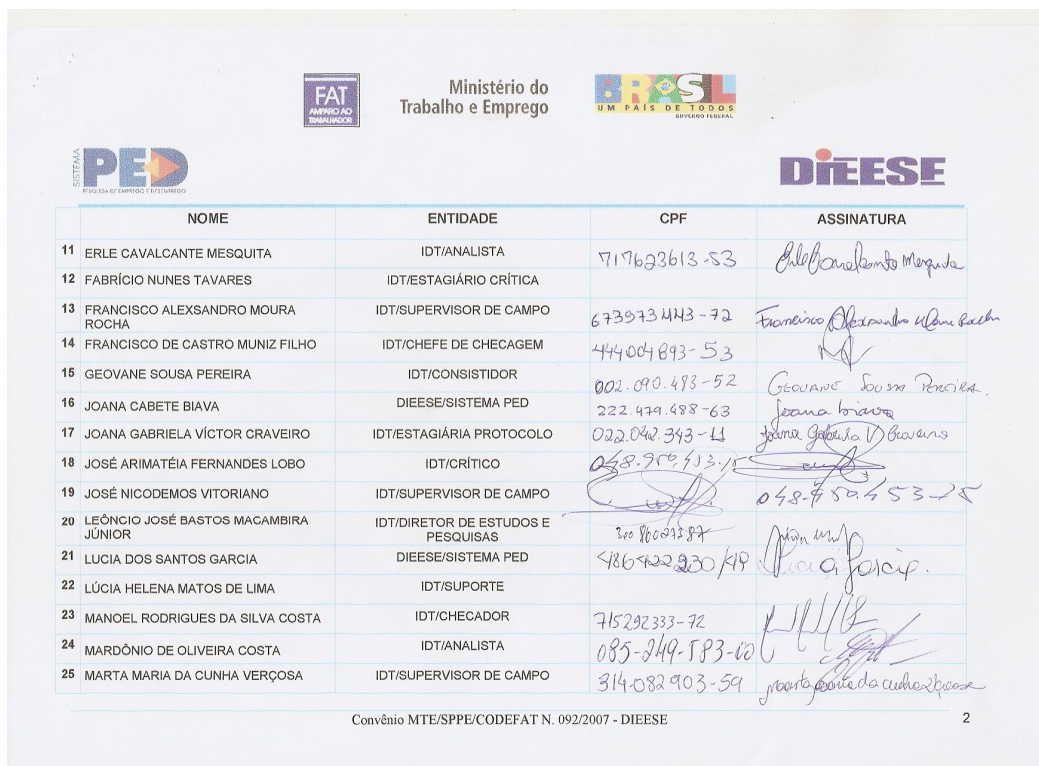 FAT
AMPARO AO
TRABALHADOR
Ministério do
Trabalho e Emprego
BRASIL
UM PAÍS DE TODOS
GOVERNO FEDERAL
SISTEMA
PED
PESQUISA DE EMPREGO E DESEMPREGO
DIEESE
NOME ENTIDADE CPF ASSINATURA
11 ERLE CAVALCANTE MESQUITA IDT/ANALISTA 717623613-53 Erle Cavalcante Mesquita
12 FABRÍCIO NUNES TAVARES IDT/ESTAGIÁRIO CRÍTICA
13 FRANCISCO ALEXSANDRO MOURA IDT/SUPERVISOR DE CAMPO 673973443-72 Francisco Alexsandro Moura Rocha
ROCHA
14 FRANCISCO DE CASTRO MUNIZ FILHO IDT/CHEFE DE CHECAGEM 444004893-53
15 GEOVANE SOUSA PEREIRA IDT/CONSISTIDOR 002.090.483-52 GEOVANE SOUSA PEREIRA
16 JOANA CABETE BIAVA DIEESE/SISTEMA PED 222.479.488-63 Joana biava
17 JOANA GABRIELA VÍCTOR CRAVEIRO IDT/ESTAGIÁRIA PROTOCOLO 022.042.343-11 Joana Gabriela V. Craveiro
18 JOSÉ ARIMATÉIA FERNANDES LOBO IDT/CRÍTICO
19 JOSÉ NICODEMOS VITORIANO IDT/SUPERVISOR DE CAMPO
20 LEÔNCIO JOSÉ BASTOS MACAMBIRA IDT/DIRETOR DE ESTUDOS E
JÚNIOR PESQUISAS
21 LUCIA DOS SANTOS GARCIA DIEESE/SISTEMA PED Lucia Garcia.
22 LÚCIA HELENA MATOS DE LIMA IDT/SUPORTE
23 MANOEL RODRIGUES DA SILVA COSTA IDT/CHECADOR 715292333-72
24 MARDÔNIO DE OLIVEIRA COSTA IDT/ANALISTA 085-249-583-00
25 MARTA MARIA DA CUNHA VERÇOSA IDT/SUPERVISOR DE CAMPO 314.082903-59 Marta Maria da Cunha Verçosa
Convênio MTE/SPPE/CODEFAT N. 092/2007 - DIEESE 2